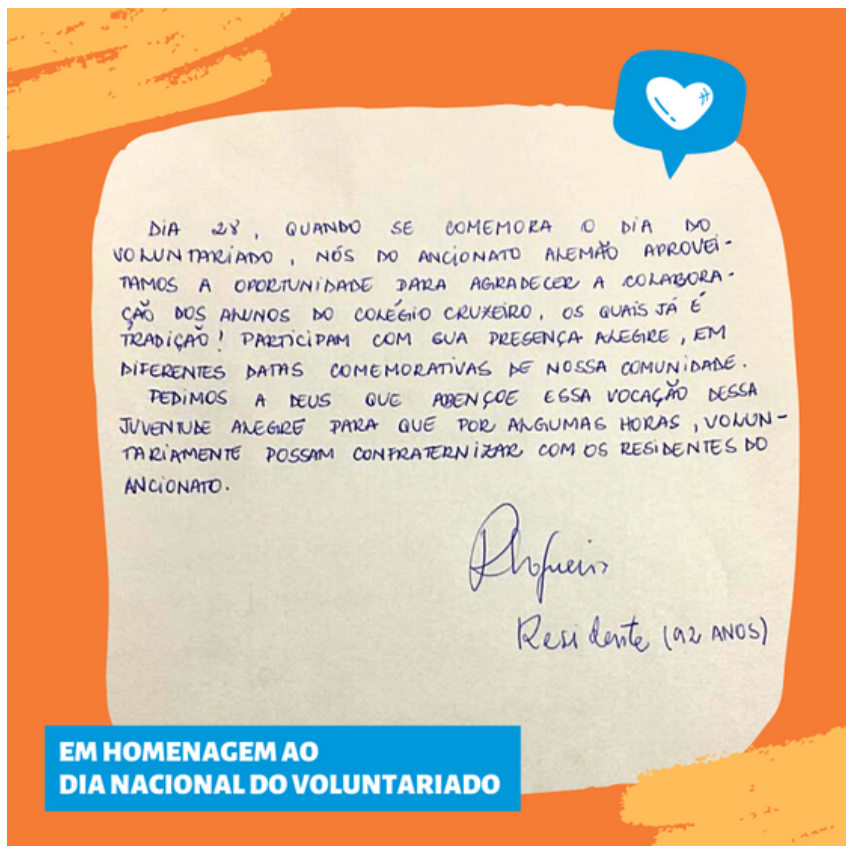 DIA 28, QUANDO SE COMEMORA O DIA DO
VOLUNTARIADO, NÓS DO ANCIONATO ALEMÃO APROVEI-
TAMOS A OPORTUNIDADE PARA AGRADECER A COLABORA-
ÇÃO DOS ALUNOS DO COLÉGIO CRUZEIRO, OS QUAIS JÁ É
TRADIÇÃO! PARTICIPAM COM SUA PRESENÇA ALEGRE, EM
DIFERENTES DATAS COMEMORATIVAS DE NOSSA COMUNIDADE.
PEDIMOS A DEUS QUE ABENÇOE ESSA VOCAÇÃO DESSA
JUVENTUDE ALEGRE PARA QUE POR ALGUMAS HORAS, VOLUN-
TARIAMENTE POSSAM CONFRATERNIZAR COM OS RESIDENTES DO
ANCIONATO.
Residente (92 ANOS)
EM HOMENAGEM AO
DIA NACIONAL DO VOLUNTARIADO